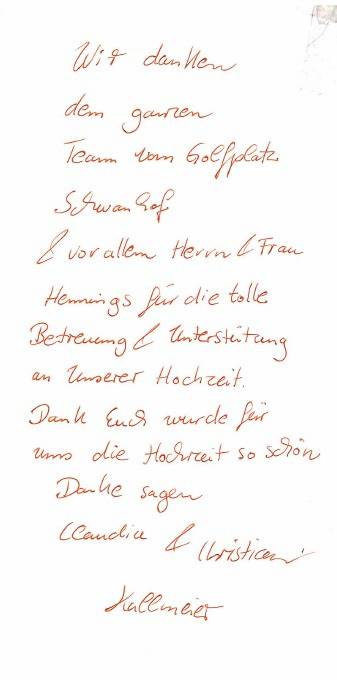 Wir danken
dem ganzen
Team vom Golfplatz
Schwanhof
& vor allem Herrn & Frau
Hennings für die tolle
Betreuung & Unterstützung
an unserer Hochzeit.
Dank Euch wurde für
uns die Hochzeit so schön
Danke sagen
Claudia & Christian
Hallmeier